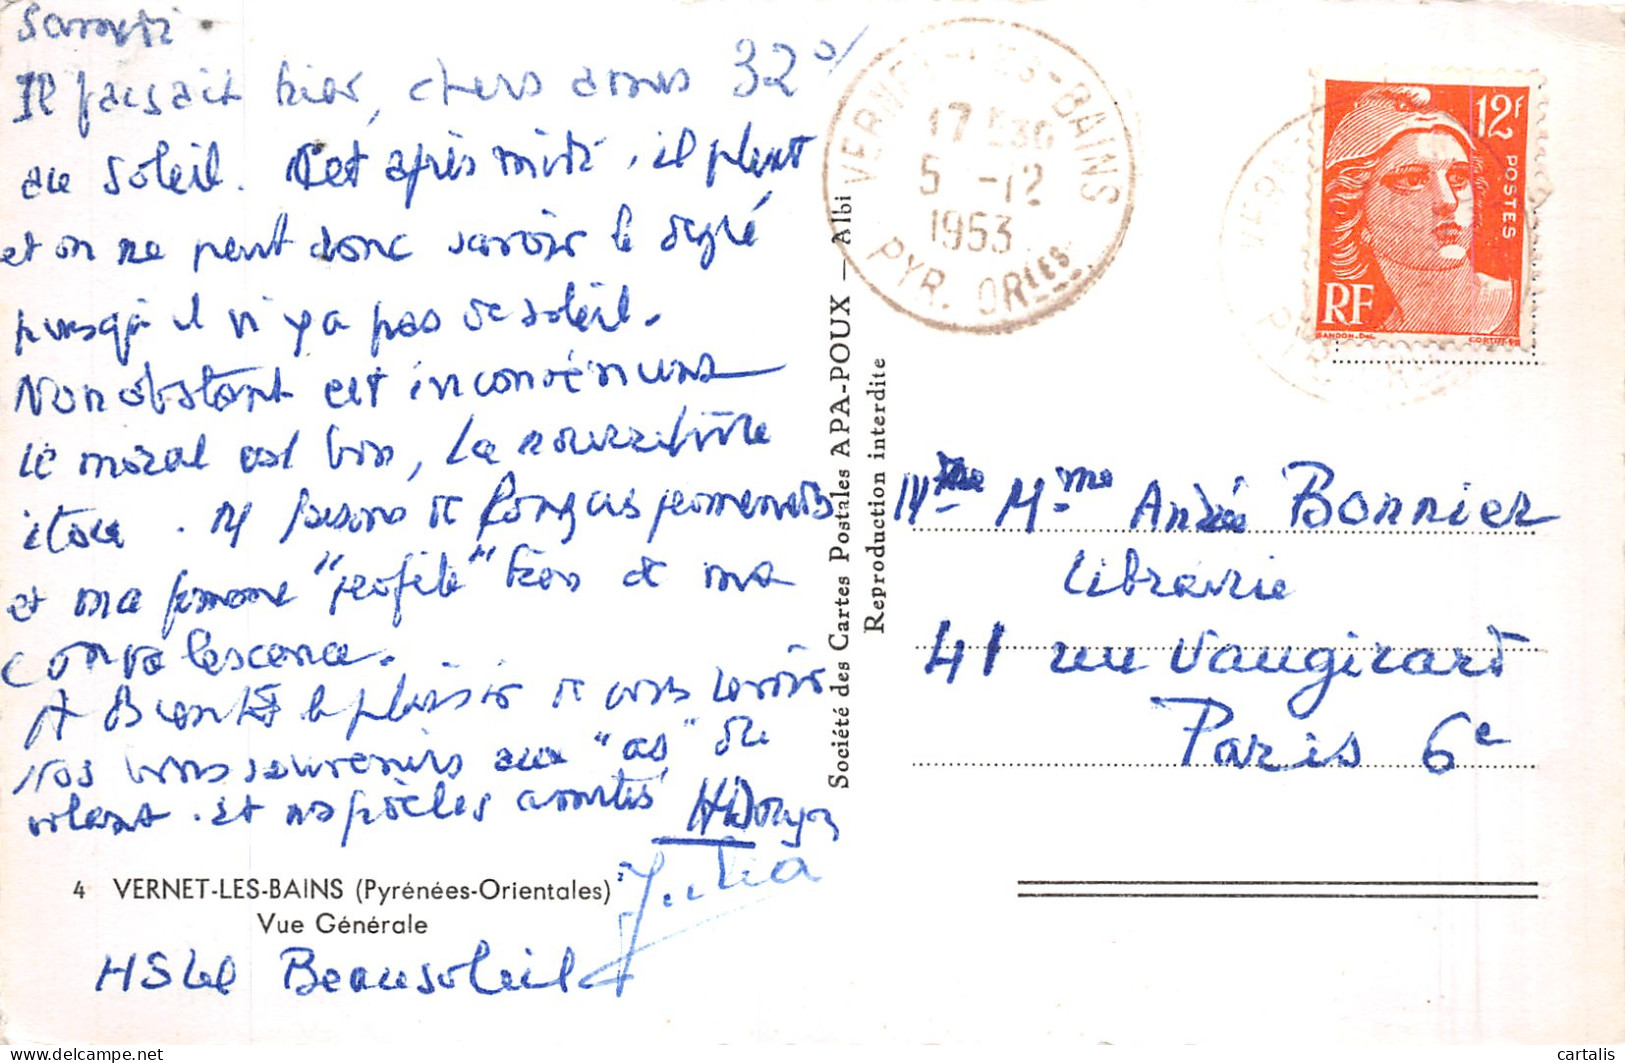 Samedi.
Il faisait hier, chers amis 32°
au soleil. Cet après midi, il pleut
et on ne peut donc savoir le degré
puisqu'il n'y a pas de soleil.
Nonobstant cet inconvénient
le moral est bon, la nourriture
itou. Nous faisons de longues promenades
et ma femme "profite" bien de ma
convalescence.
A Bientôt le plaisir de vous revoir
Nos bons souvenirs aux "as" du
volant. et nos fidèles amitiés
Julia
4 VERNET-LES-BAINS (Pyrénées-Orientales)
Vue Générale
Hôtel Beausoleil
Société des Cartes Postales APA-POUX — Albi
Reproduction interdite
VERNET-LES-BAINS
17 30
5 -12
1953
PYR. ORles
12F
POSTES
RF
GANDON. Del.
CORTOT. SC
Mme André Bonnier
Librairie
41 rue Vaugirard
Paris 6e
delcampe.net
cartalis